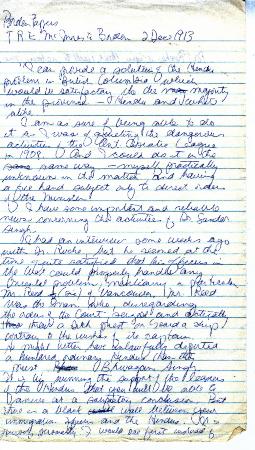 Borden Papers
T.R.E. McInnes to Borden 2 Dec 1913
I can provide a solution to the Hindu
problem in British Columbia which
would be satisfactory to the majority
in the province - Hindu and white
alike.
I am as sure of being able to do
it as I was of quieting the dangerous
activities of the Anti Asiatic League
in 1908. And I could do it in the
same way - myself practically
unknown in the matter and having
a free hand subject only to direct orders
of the Minister.
I have some important and reliable
news concerning the activities of Dr. Sunder
Singh.
I had an interview some weeks ago
with Dr. Roche, but he seemed at the
time quite satisfied that his officers in
the West could properly handle any
Oriental problem, indicating in particular
Mr Reed of Vancouver. Mr. Reed
was the man who, disregarding
the order of the Court, seized and
a sick priest on board a ship
contrary to the wishes of its captain.
He might better have lawfully deported
a hundred ordinary Hindus than this
priest Bhagwan Singh.
It is by winning the support of the leaders
of the Hindus that you will be able to
at a satisfactory conclusion. But
there is a blank wall between your
immigration officers and the Hindus.
personally. I would our first